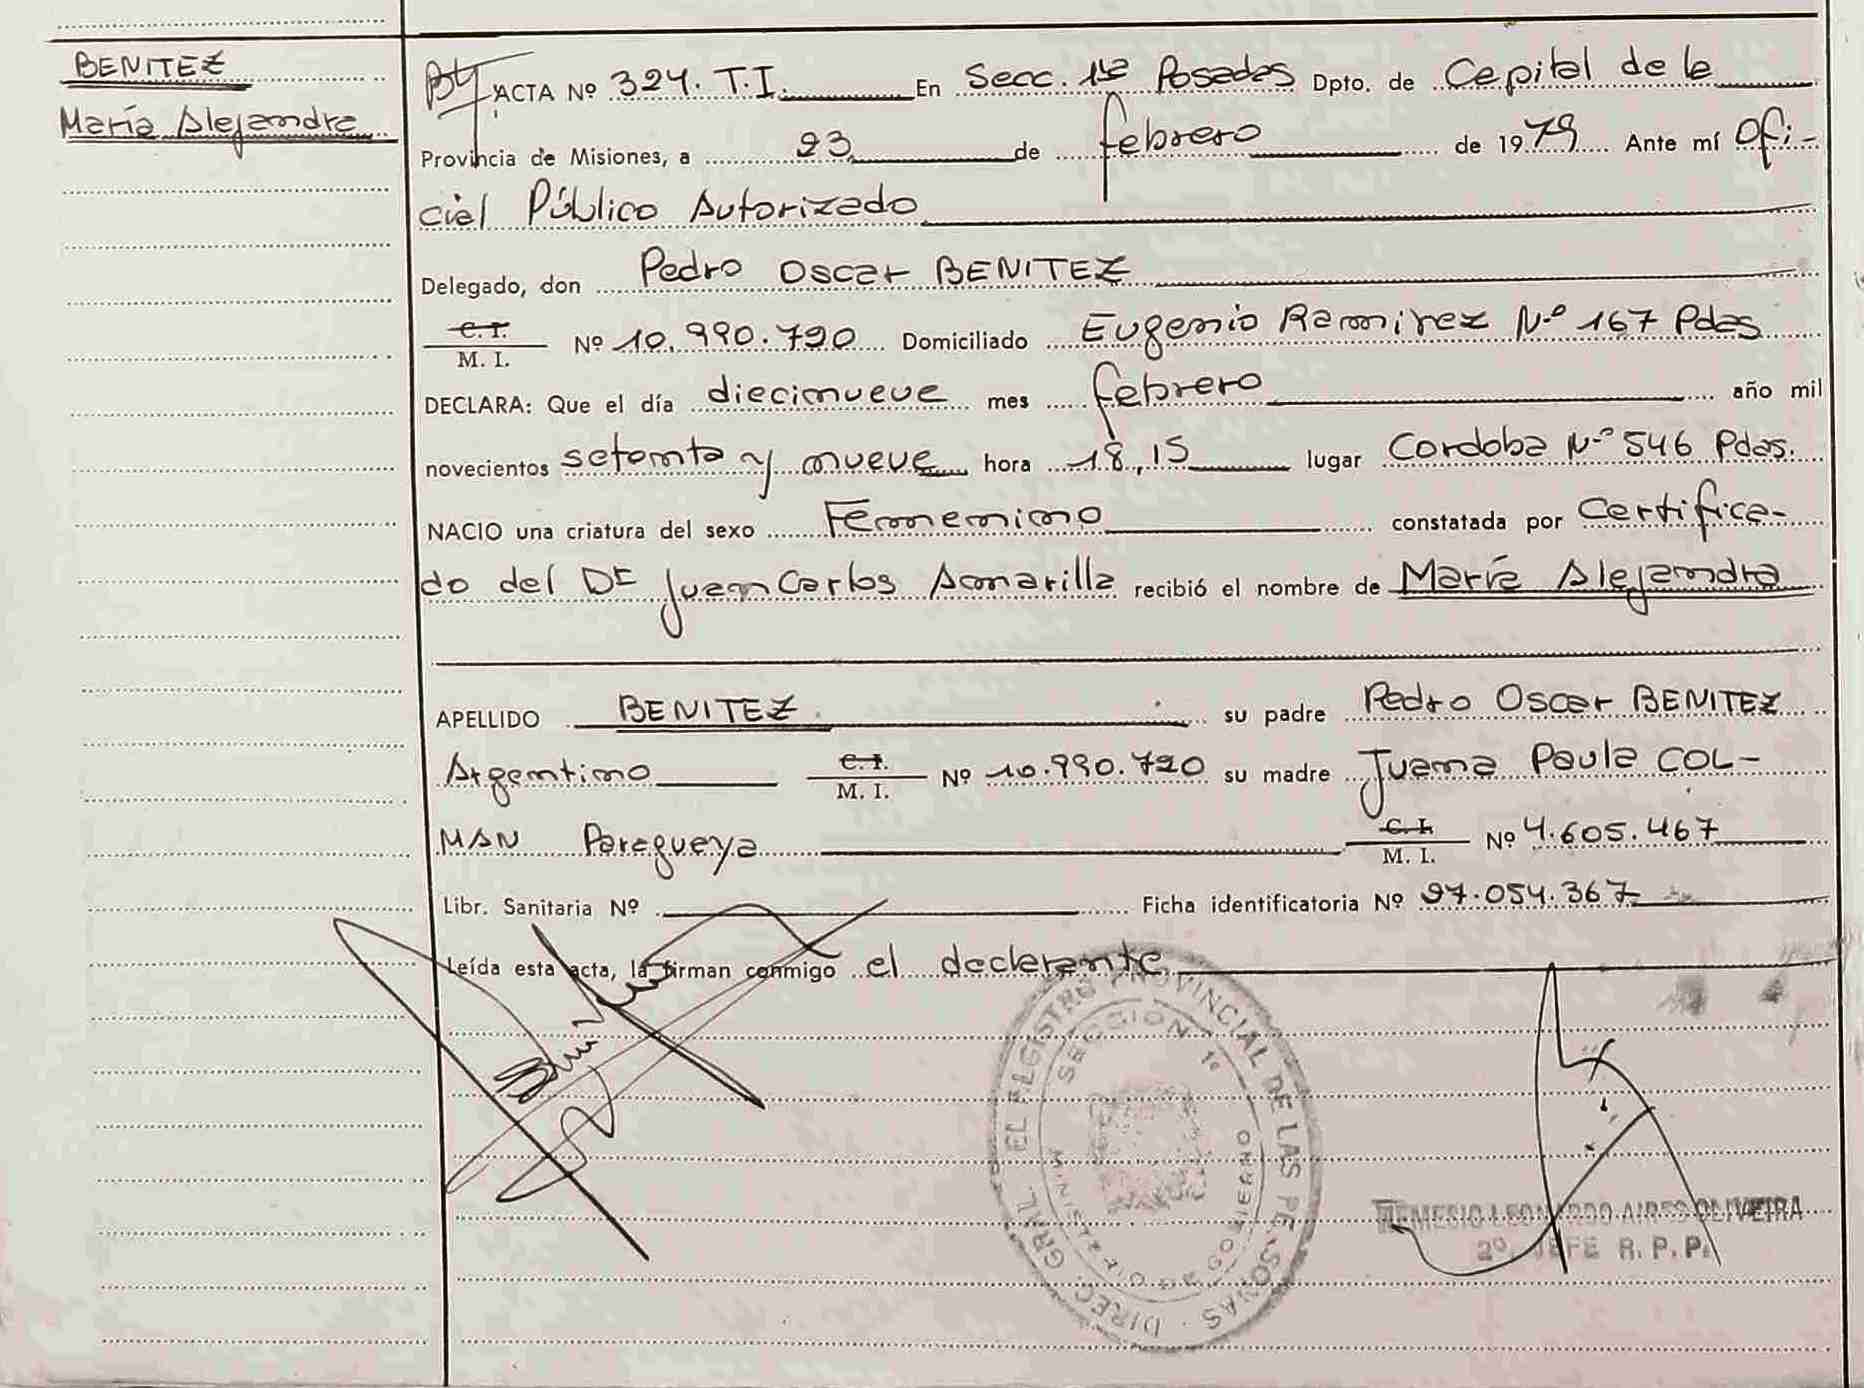 BENITEZ
María Alejandra
ACTA Nº 324. T.I. En Secc. 1ra Posadas Dpto. de Capital de la
Provincia de Misiones, a 23 de febrero de 1979 Ante mí Ofi-
cial Público Autorizado
Delegado, don Pedro Oscar BENITEZ
C. I.
M. I. Nº 10.990.790 Domiciliado Eugenio Ramirez Nº 167 Pdas
DECLARA: Que el día diecinueve mes febrero año mil
novecientos setenta y nueve hora 18,15 lugar Cordoba Nº 546 Pdas.
NACIO una criatura del sexo Femenino constatada por Certifica-
do del Dr Juan Carlos Amarilla recibió el nombre de María Alejandra
APELLIDO BENITEZ su padre Pedro Oscar BENITEZ
Argentino C. I. M. I. Nº 10.990.790 su madre Juana Paula COL-
MAN Paraguaya C. I. M. I. Nº 4.605.467
Libr. Sanitaria Nº Ficha identificatoria Nº 27.054.367
Leída esta acta, la firman conmigo el declarante
DIREC. GRAL. EL REGISTRO PROVINCIAL DE LAS PERSONAS
SECCION 1º
MINISTERIO DE GOBIERNO
NEMESIO LEONARDO AIRES OLIVEIRA
2º JEFE R. P. P.